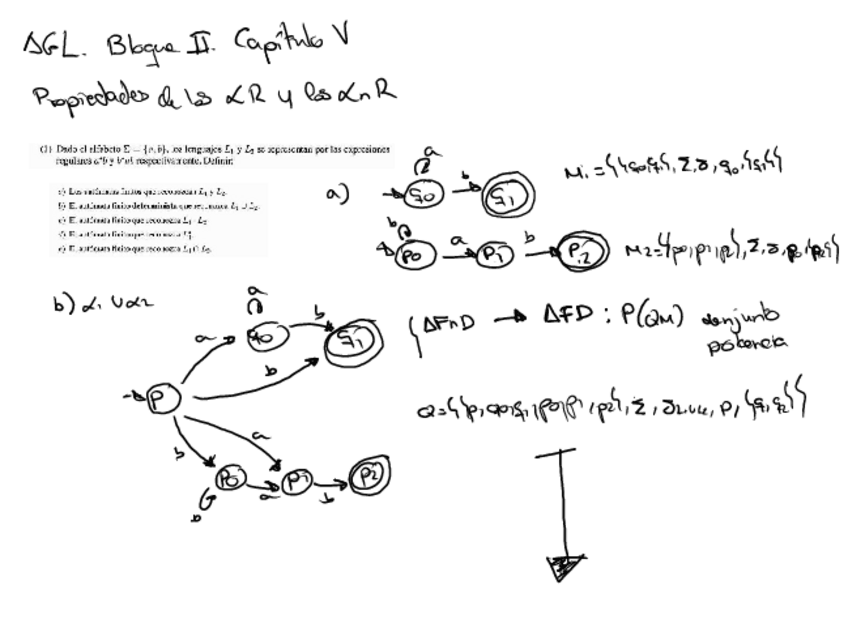 AGL. Bloque II. Capítulo V
Propiedades de los LR y los LnR
(1) Dado el alfabeto Σ = {a, b}, los lenguajes L₁ y L₂ se representan por las expresiones
regulares a*b y b*ab respectivamente. Definir:
a) Los autómatas finitos que reconozcan L₁ y L₂.
b) El autómata finito determinista que reconozca L₁ ∪ L₂.
c) El autómata finito que reconozca
d) El autómata finito que reconozca
e) El autómata finito que reconozca L₁ ∩ L₂.
a)
a
q0 b q1
M₁ = {{q0,q1}, Σ, δ, q0, {q1}}
b
p0 a p1 b p2
M2 = {{p0, p1, p2}, Σ, δ, p0, {p2}}
b) L₁ ∪ L2
a
a q0 b q1
b
p
b a
p0 a p1 b p2
b
AFnD → AFD : P(QM) conjunto
potencia